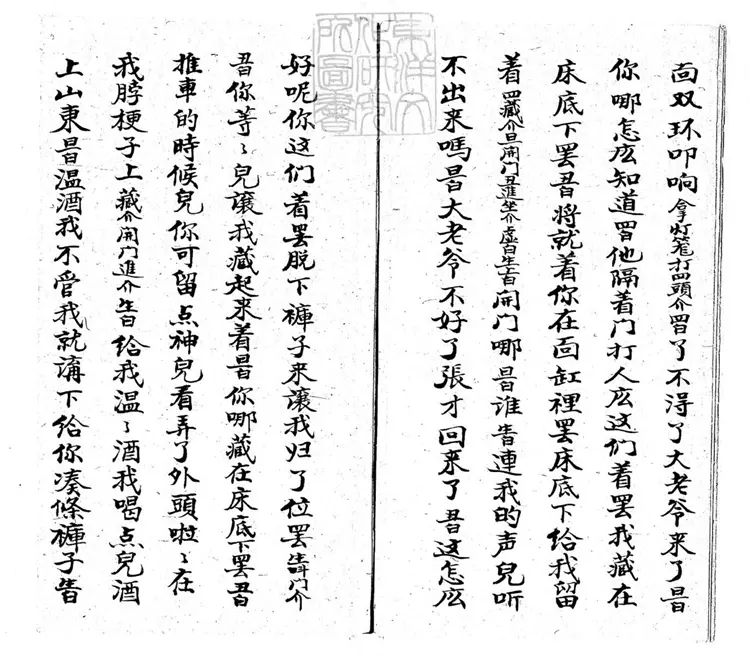 靣双环叩响拿灯笼打四頭介四白了不淂了大老爷来了旦白
你哪怎庅知道四白他隔着门打人庅这们着罢我藏在
床底下罢丑白将就着你在靣缸裡罢床底下给我留
着四藏介旦開门丑進坐介虚白生白開门哪旦白谁生白連我的声兒听
不出来嗎旦白大老爷不好了張才回来了丑白这怎庅
好呢你这们着罢脱下褲子来讓我归了位罢生白門介
丑白你等〻兒讓我藏起来着旦白你哪藏在床底下罢丑白
推車的時候兒你可留点神兒看弄了外頭啦〻在
我脖梗子上藏介開门進介生白给我温〻酒我喝点兒酒
上山東旦白温酒我不管我就講下给你凑條褲子生白
東洋文
化研究
所圖書